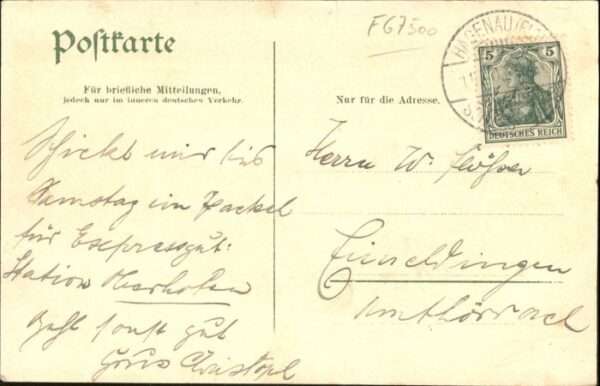 Postkarte
FG7500
HAGENAU (ELS
5 5
DEUTSCHES REICH
Für briefliche Mitteilungen,
jedoch nur im inneren deutschen Verkehr.
Nur für die Adresse.
Schickt mir bis
Samstag ein Packet
für Expressgut:
Station Oberhofen
Geht sonst gut
Gruss Christoph
Herrn W.
Eimeldingen
Amt Lörrach